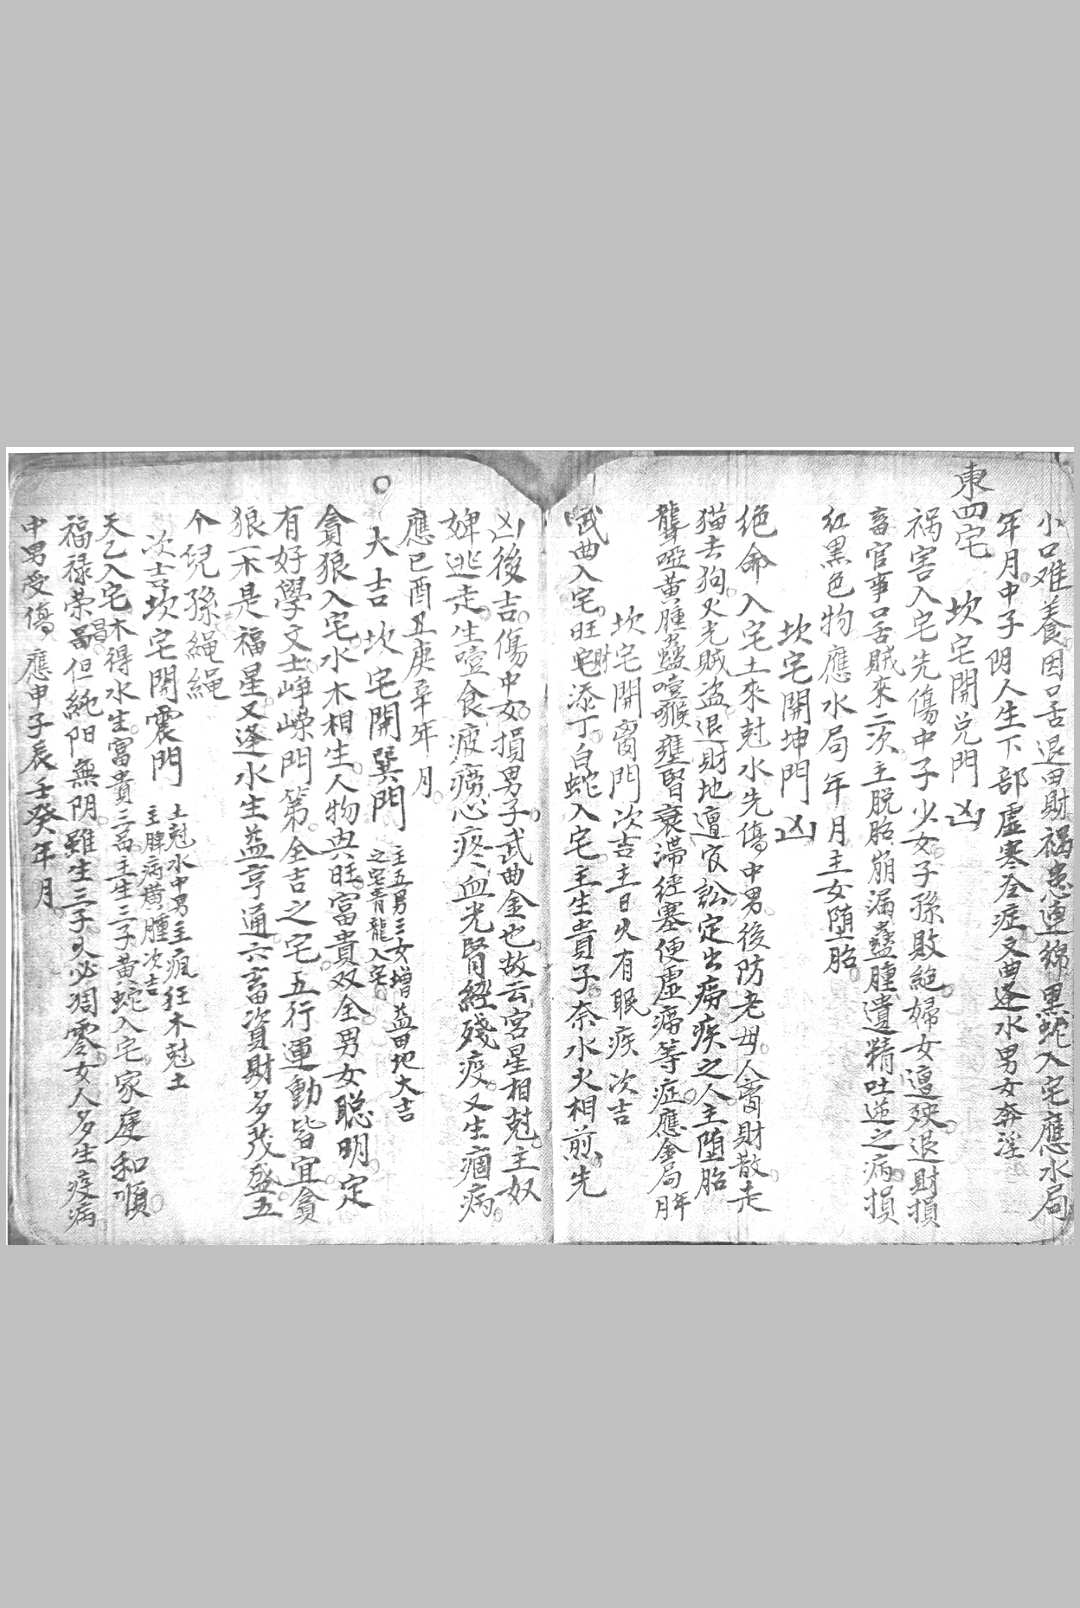 小口难養因口舌退田財禍患連綿黑蛇入宅應水局
年月中子阴人生下部虛寒冷症又曲逢水男女奔淫
東四宅
坎宅開兌門 凶
祸害入宅先傷中子少女子孫敗絕婦女遭殃退財損
畜官事口舌賊來二次主脫胎崩漏蠱腫遺精吐逆之病損
紅黑色物應水局年月主女堕胎
坎宅開坤門 凶
绝命入宅土來尅水先傷中男後防老母人离財散走
猫去狗火光賊盗退財地遭官訟定出痨疾之人主堕胎
聾啞黄腫蠱噎喉壅腎衰滞經塞便虛痨等症應金局年月
坎宅開离門 次吉主日火有眼疾 次吉
武曲入宅旺宅財添丁白蛇入宅主生貴子奈水火相煎先
凶後吉傷中女損男子武曲金也故云宮星相尅主奴
婢逃走生噎食疲癆心疼血光腎經殘疫又生痼病
應巳酉丑庚辛年月
大吉 坎宅開巽門 主五男三女增益田地大吉
之宅青龍入宅
貪狼入宅水木相生人物典旺富貴双全男女聪明定
有好學文士峥嶸門第全吉之宅五行運動皆宜貪
狼一木是福星又逢水生益亨通六畜資財多茂盛五
个兒孫繩繩
次吉坎宅開震門 土尅水中男主瘋狂木尅土
主脾病黄腫次吉
天乙入宅木得水生富貴三百主生三子黄蛇入宅家庭和順
福禄荣昌但純阳無阴雖生三子久必凋零女人多生疫病
中男受傷 應申子辰壬癸年月